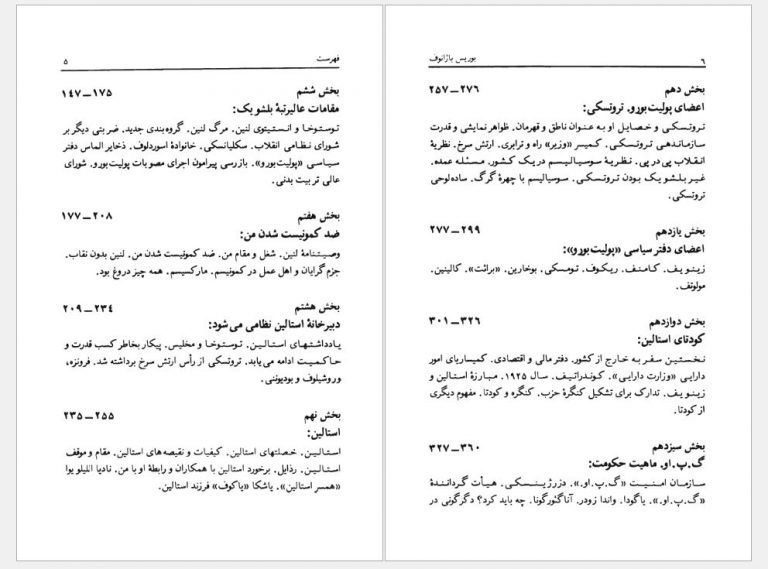 فهرست ۵
بخش ششم ۱۴۷ــ۱۷۵
مقامات عالیرتبهٔ بلشویک:
توستوخا و انستیتوی لنین. مرگ لنین. گروه‌بندی جدید. ضربتی دیگر بر
شورای نظامی انقلاب. سکلیانسکی. خانوادهٔ اسوردلوف. ذخایر الماس دفتر
سیاسی «پولیت‌بورو». بازرسی پیرامون اجرای مصوبات پولیت‌بورو. شورای
عالی تربیت بدنی.
بخش هفتم ۱۷۷ــ۲۰۸
ضد کمونیست شدن من:
وصیتنامهٔ لنین. شغل و مقام من. ضد کمونیست شدن من. لنین بدون نقاب.
جزم‌گرایان و اهل عمل در کمونیسم. مارکسیسم. همه چیز دروغ بود.
بخش هشتم ۲۰۹ــ۲۳۴
دبیرخانهٔ استالین نظامی می‌شود:
یادداشتهای استالین. توستوخا و مخلیس. پیکار بخاطر کسب قدرت و
حاکمیت ادامه می‌یابد. تروتسکی از رأس ارتش سرخ برداشته شد. فرونزه،
وروشیلوف و بودیوننی.
بخش نهم ۲۳۵ــ۲۵۵
استالین:
استالین. خصلتهای استالین. کیفیات و نقیصه‌های استالین. مقام و موقف
استالین. رذایل. برخورد استالین با همکاران و رابطهٔ او با من. نادیا اللیلویوا
«همسر استالین». یاشکا «یاکوف» فرزند استالین.
بوریس باژانوف ۶
بخش دهم ۲۵۷ــ۲۷۶
اعضای پولیت‌بورو. تروتسکی:
تروتسکی و خصایل او به عنوان ناطق و قهرمان. ظواهر نمایشی و قدرت
سازماندهی تروتسکی. کمیسر «وزیر» راه و ترابری. ارتش سرخ. نظریهٔ
انقلاب پی‌درپی. نظریهٔ سوسیالیسم در یک کشور. مسئله عمده.
غیر بلشویک بودن تروتسکی. سوسیالیسم با چهرهٔ گرگ. ساده‌لوحی
تروتسکی.
بخش یازدهم ۲۷۷ــ۲۹۹
اعضای دفتر سیاسی «پولیت‌بورو»:
زینویف. کامنف. ریکوف. تومسکی. بوخارین. «برائت». کالینین.
مولوتف.
بخش دوازدهم ۳۰۱ــ۳۲۶
کودتای استالین:
نخستین سفر به خارج از کشور. دفتر مالی و اقتصادی. کمیساریای امور
دارایی «وزارت دارایی». کوندراتیف. سال ۱۹۲۵. مبارزهٔ استالین و
زینویف. تدارک برای تشکیل کنگرهٔ حزب. کنگره و کودتا. مفهوم دیگری
از کودتا.
بخش سیزدهم ۳۲۷ــ۳۶۰
گ.پ.او. ماهیت حکومت:
سازمان امنیت «گ.پ.او.». دزرژینسکی. هیأت گردانندهٔ
«گ.پ.او.». یاگودا. واندا زودر. آناگئورگونا. چه باید کرد؟ دگرگونی در